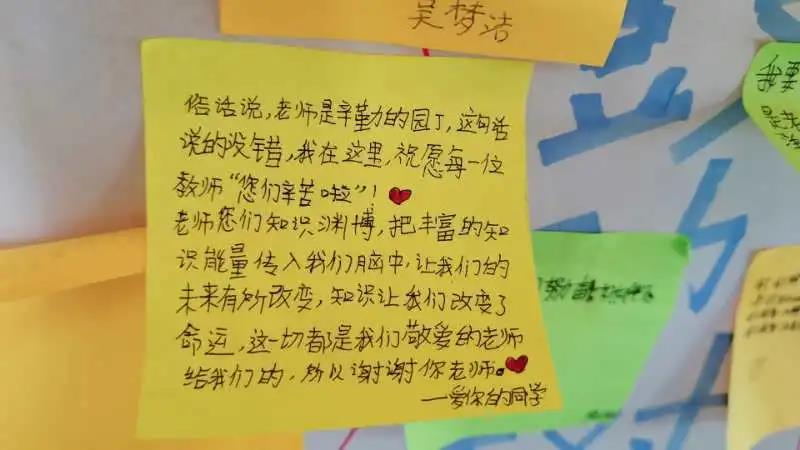 吴梦洁
俗话说，老师是辛勤的园丁，这句话
说的没错，我在这里，祝愿每一位
教师“您们辛苦啦”！
老师您们知识渊博，把丰富的知
识能量传入我们脑中，让我们的
未来有所改变，知识让我们改变了
命运，这一切都是我们敬爱的老师
给我们的，所以谢谢你老师。
—爱你的同学